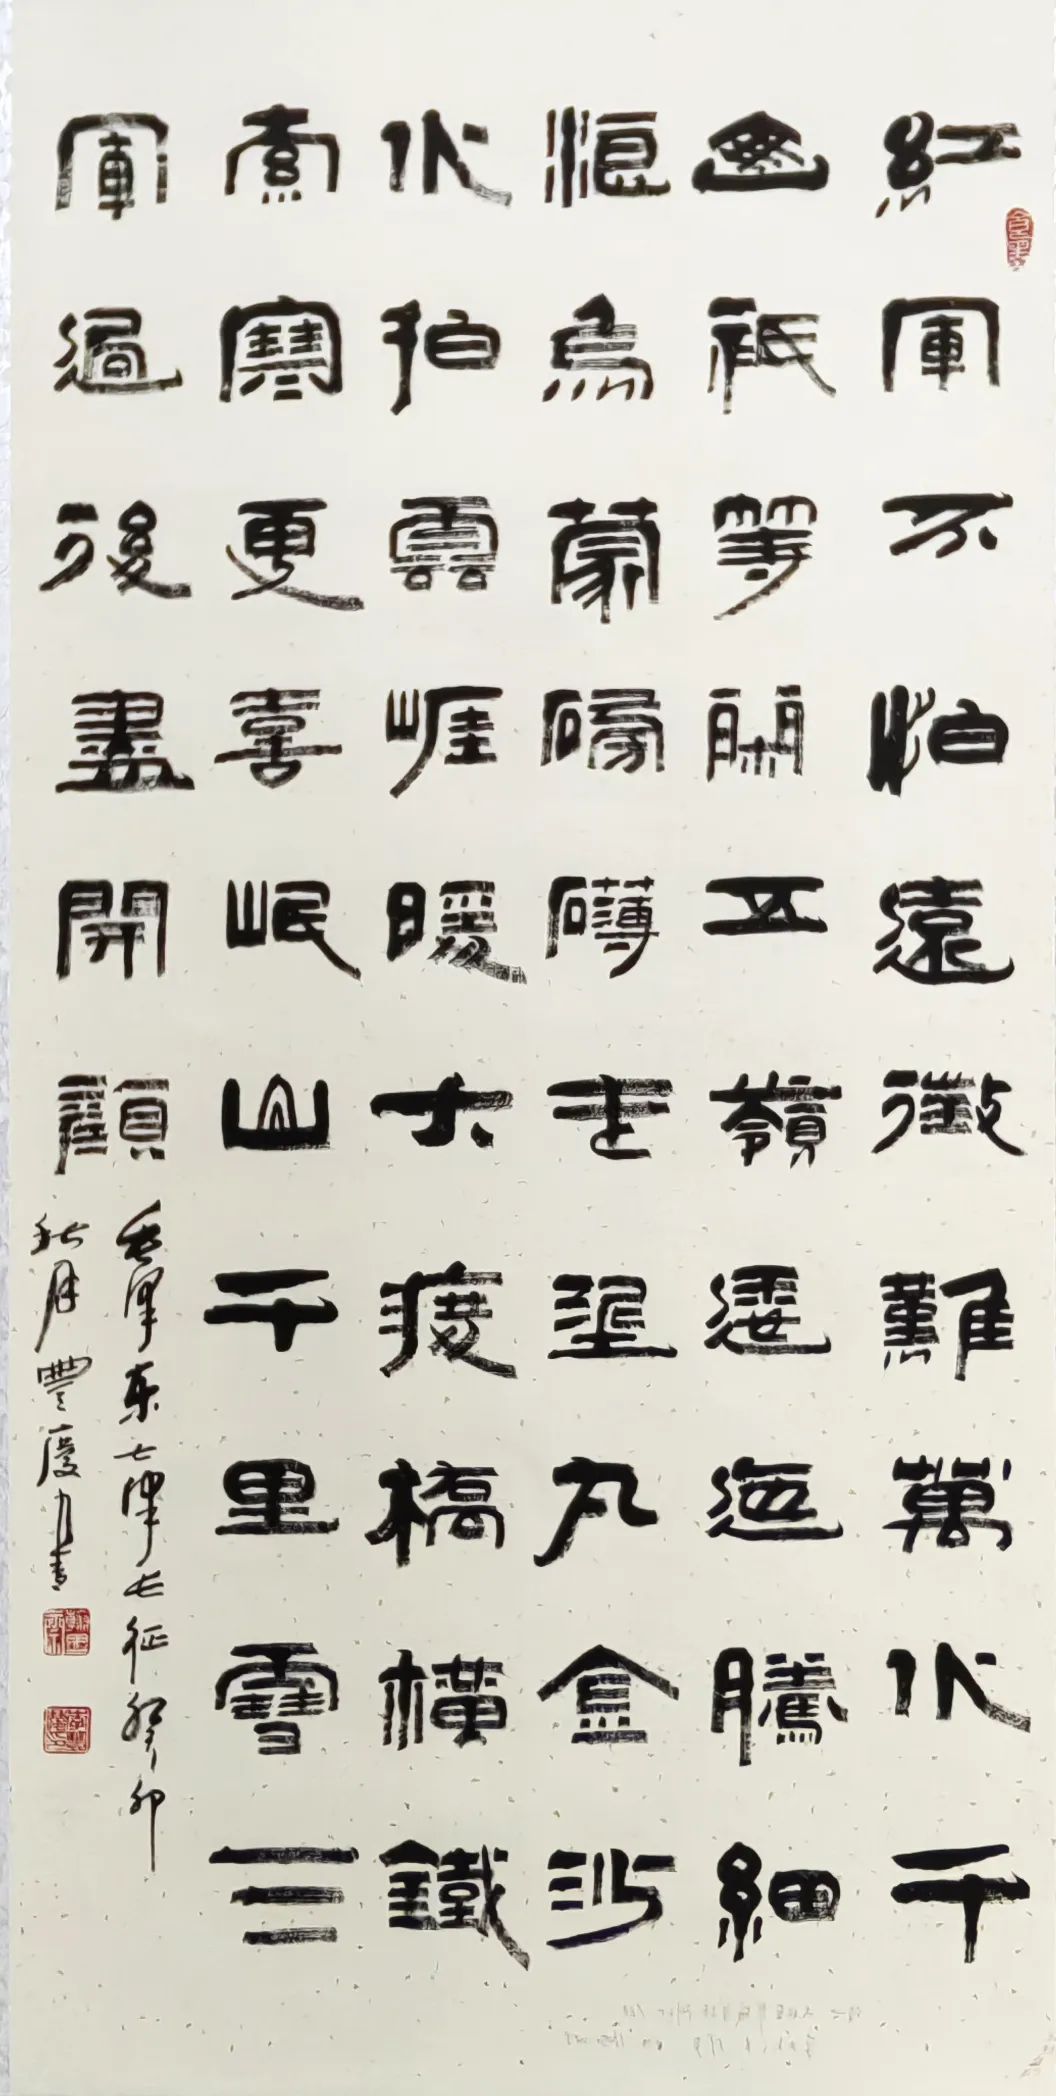 紅軍不怕遠徵難萬水千
山祇等閑五嶺逶迤騰細
浪烏蒙磅礴走埿丸金沙
水拍雲崖暖大渡橋橫鐵
索寒更喜岷山千里雪三
軍過後盡開顏
毛澤东七律长征癸卯
秋月豐慶書